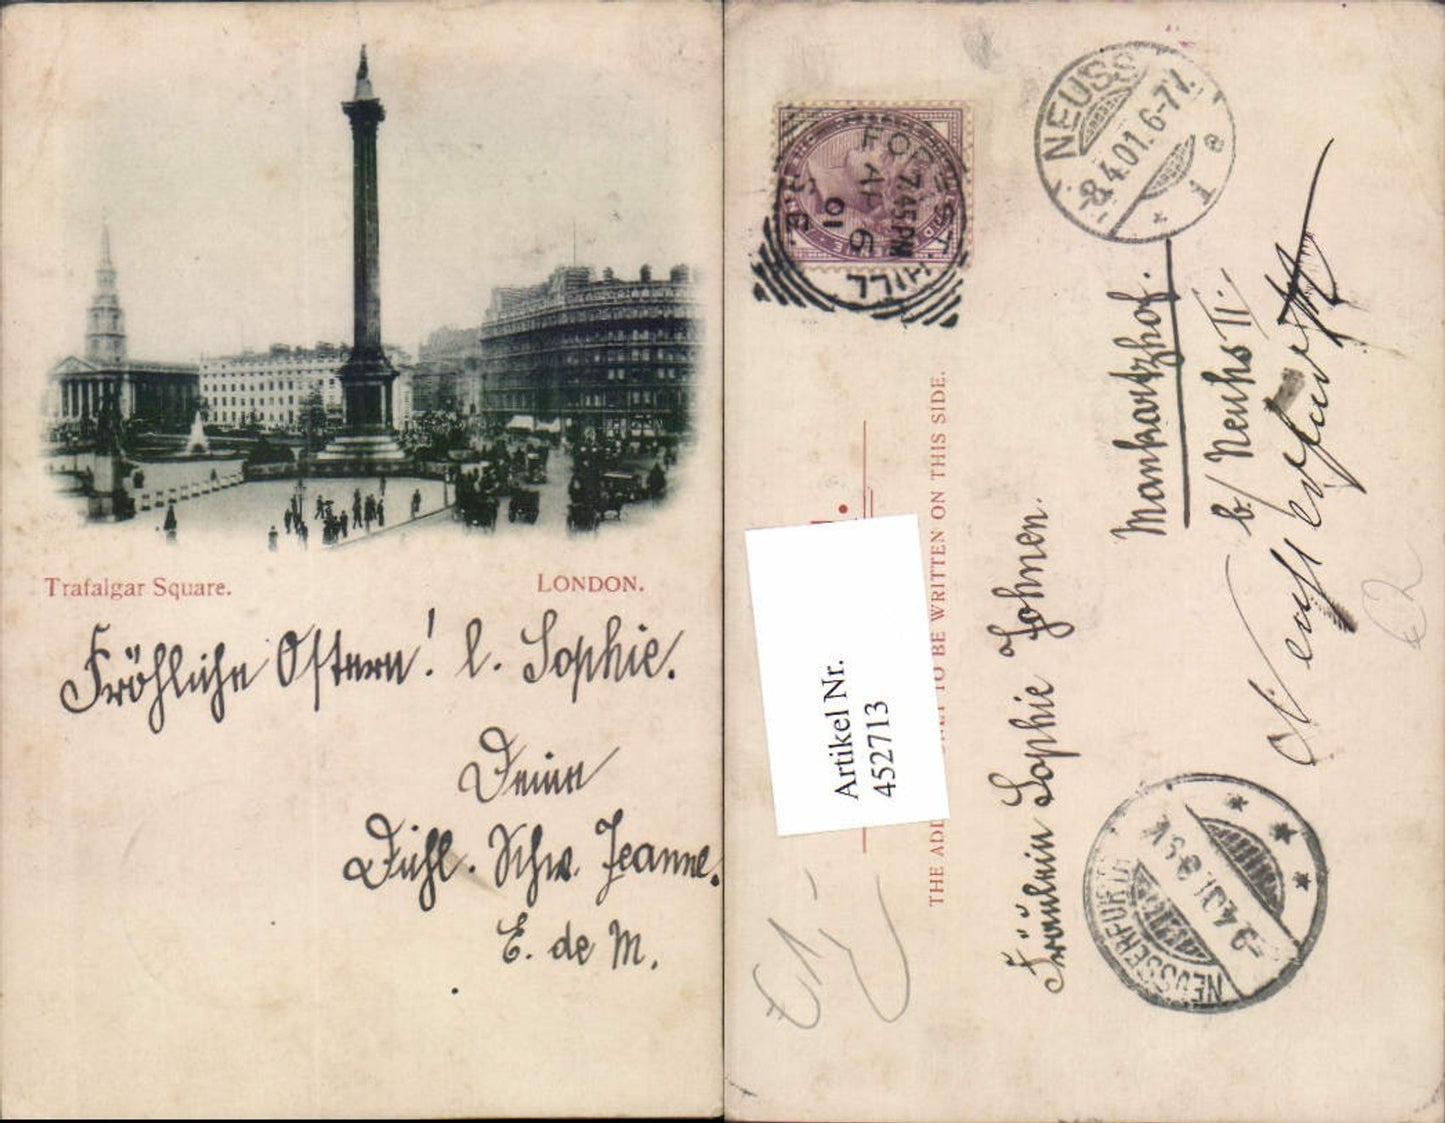 Trafalgar Square.
LONDON.
Fröhliche Ostern! l. Sophie.
Deine
Dichl. Schw. Jeanne.
E. de M.
FOREST HILL
S.E.
7.45 PM
AP 6
01
NEUSS
-8.4.01.6-7V.
* 1 e
Artikel Nr.
452713
TO BE WRITTEN ON THIS SIDE.
Fräulein Sophie Johnen.
Mankartzhof.
b/ Neuhs II.
Neusserfurth
NEUSSERFURTH
-9.4.01. 8-9 V.